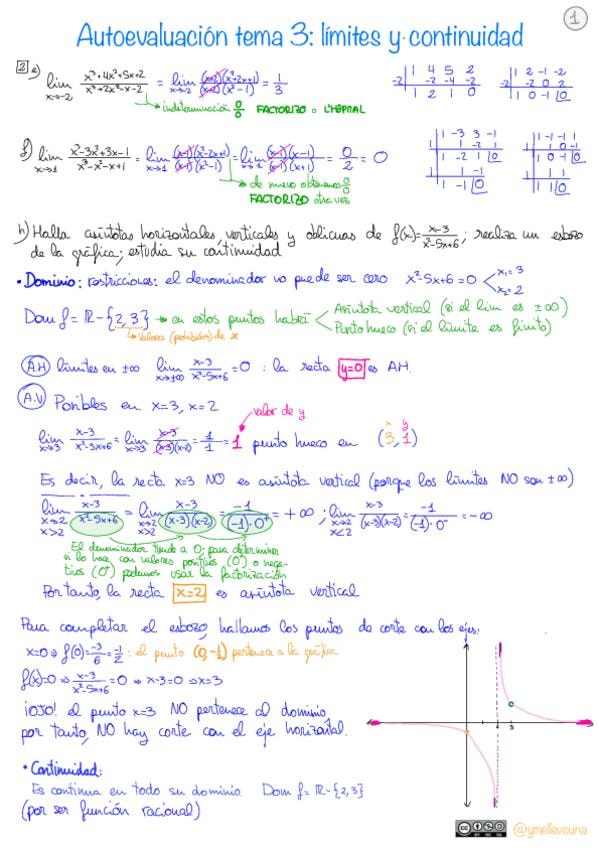 1
Autoevaluación tema 3: límites y continuidad
2 e) lim x→-2 (x³+4x²+5x+2)/(x³+2x²-x-2) = lim x→-2 (x+2)(x²+2x+1)/(x+2)(x²-1) = 1/3
→ indeterminación 0/0 FACTORIZO o L'HÔPITAL
1 4 5 2
-2 | -2 -4 -2
1 2 1 0
1 2 -1 -2
-2 | -2 0 2
1 0 -1 0
f) lim x→1 (x³-3x²+3x-1)/(x³-x²-x+1) = lim x→1 (x-1)(x²-2x+1)/(x-1)(x²-1) = lim x→1 (x-1)(x-1)/(x-1)(x+1) = 0/2 = 0
→ de nuevo obtenemos 0/0
FACTORIZO otra vez
1 -3 3 -1
1 | 1 -2 1
1 -2 1 0
1 | 1 -1
1 -1 0
1 -1 -1 1
1 | 1 0 -1
1 0 -1 0
1 | 1 1
1 1 0
h) Halla asíntotas horizontales, verticales y oblicuas de f(x)=(x-3)/(x²-5x+6); realiza un esbozo
de la gráfica; estudia su continuidad
• Dominio: restricciones: el denominador no puede ser cero x²-5x+6=0 < x₁=3 x₂=2
Dom f = ℝ-{2,3} → en estos puntos habrá < Asíntota vertical (si el lim es ±∞)
Punto hueco (si el límite es finito)
→ Valores (prohibidos) de x
A.H límites en ±∞ lim x→±∞ (x-3)/(x²-5x+6) = 0 : la recta y=0 es AH.
A.V Posibles en x=3, x=2
valor de y
lim x→3 (x-3)/(x²-5x+6) = lim x→3 (x-3)/(x-3)(x-2) = 1/1 = 1 punto hueco en (3,1)
x y
Es decir, la recta x=3 NO es asíntota vertical (porque los límites NO son ±∞)
lim x→2 x>2 (x-3)/(x²-5x+6) = lim x→2 x>2 (x-3)/(x-3)(x-2) = -1/(-1)·0⁺ = +∞ ; lim x→2 x<2 (x-3)/(x-3)(x-2) = -1/(-1)·0⁻ = -∞
El denominador tiende a 0; para determinar
si lo hace con valores positivos (0⁺) o nega-
tivos (0⁻) podemos usar la factorización
Por tanto, la recta x=2 es asíntota vertical
Para completar el esbozo, hallamos los puntos de corte con los ejes:
x=0 ⇒ f(0)=-3/6=-1/2 : el punto (0,-1/2) pertenece a la gráfica
f(x)=0 ⇒ (x-3)/(x²-5x+6) = 0 ⇒ x-3=0 ⇒ x=3
¡OJO! el punto x=3 NO pertenece al dominio,
por tanto, NO hay corte con el eje horizontal.
• Continuidad:
Es continua en todo su dominio Dom f = ℝ-{2,3}
(por ser función racional)
2 3
cc BY NC SA
@ymellevouna